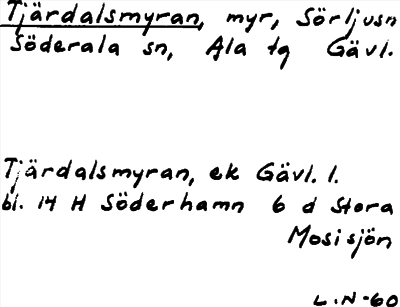 Tjärdalsmyran, myr, Sörljusn
Söderala sn, Ala tg Gävl.
Tjärdalsmyran, ek Gävl. l.
bl. 14 H Söderhamn 6 d Stora
Mosisjön
L.N-60